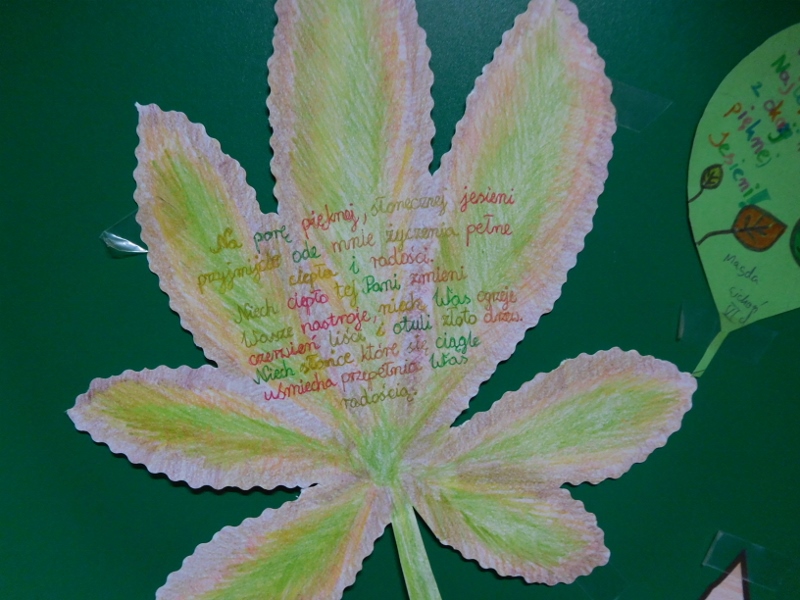 Na porę pięknej, słonecznej jesieni
przyjmijcie ode mnie życzenia pełne
ciepła i radości.
Niech ciepło tej Pani zmieni
Wasze nastroje, niech Was ogrzeje
czerwień liści i otuli złoto drzew.
Niech słońce które się ciągle
uśmiecha przepełnia Was
radością.
z okazji
pięknej
jesieni!!
Magda